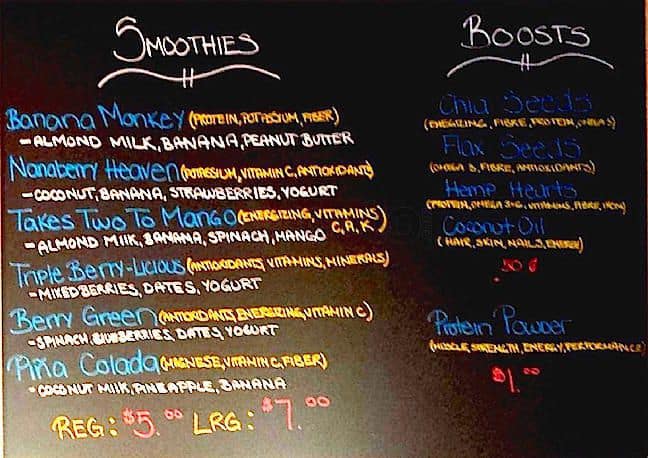 SMOOTHIES
Banana Monkey (PROTEIN, POTASSIUM, FIBER)
- ALMOND MILK, BANANA, PEANUT BUTTER
Nanaberry Heaven (POTASSIUM, VITAMIN C, ANTIOXIDANTS)
- COCONUT, BANANA, STRAWBERRIES, YOGURT
Takes Two To Mango (ENERGIZING, VITAMINS
C, A, K)
- ALMOND MILK, BANANA, SPINACH, MANGO
Triple Berry-Licious (ANTIOXIDANTS, VITAMINS, MINERALS)
- MIXED BERRIES, DATES, YOGURT
Berry Green (ANTIOXIDANTS, ENERGIZING, VITAMIN C)
- SPINACH, BLUEBERRIES, DATES, YOGURT
Piña Colada (MAGNESE, VITAMIN C, FIBER)
- COCONUT MILK, PINEAPPLE, BANANA
REG: $5.00 LRG: $7.00
BOOSTS
Chia Seeds
(ENERGIZING, FIBRE, PROTEIN, OMEGA 3)
Flax Seeds
(OMEGA 3, FIBRE, ANTIOXIDANTS)
Hemp Hearts
(PROTEIN, OMEGA 3+6, VITAMINS, FIBRE, IRON)
Coconut Oil
(HAIR, SKIN, NAILS, ENERGY)
.50¢
Protein Powder
(MUSCLE, STRENGTH, ENERGY, PERFORMANCE)
$1.00